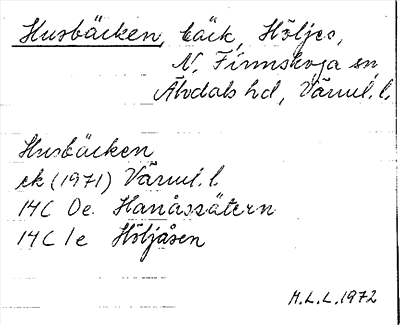 Husbäcken, bäck, Höljes,
N. Finnskoga sn,
Älvdals hd, Värml. l.
Husbäcken
ek (1971) Värml. l.
14C 0e. Hanåssätern
14C 1e Höljåsen
M.L.L. 1972